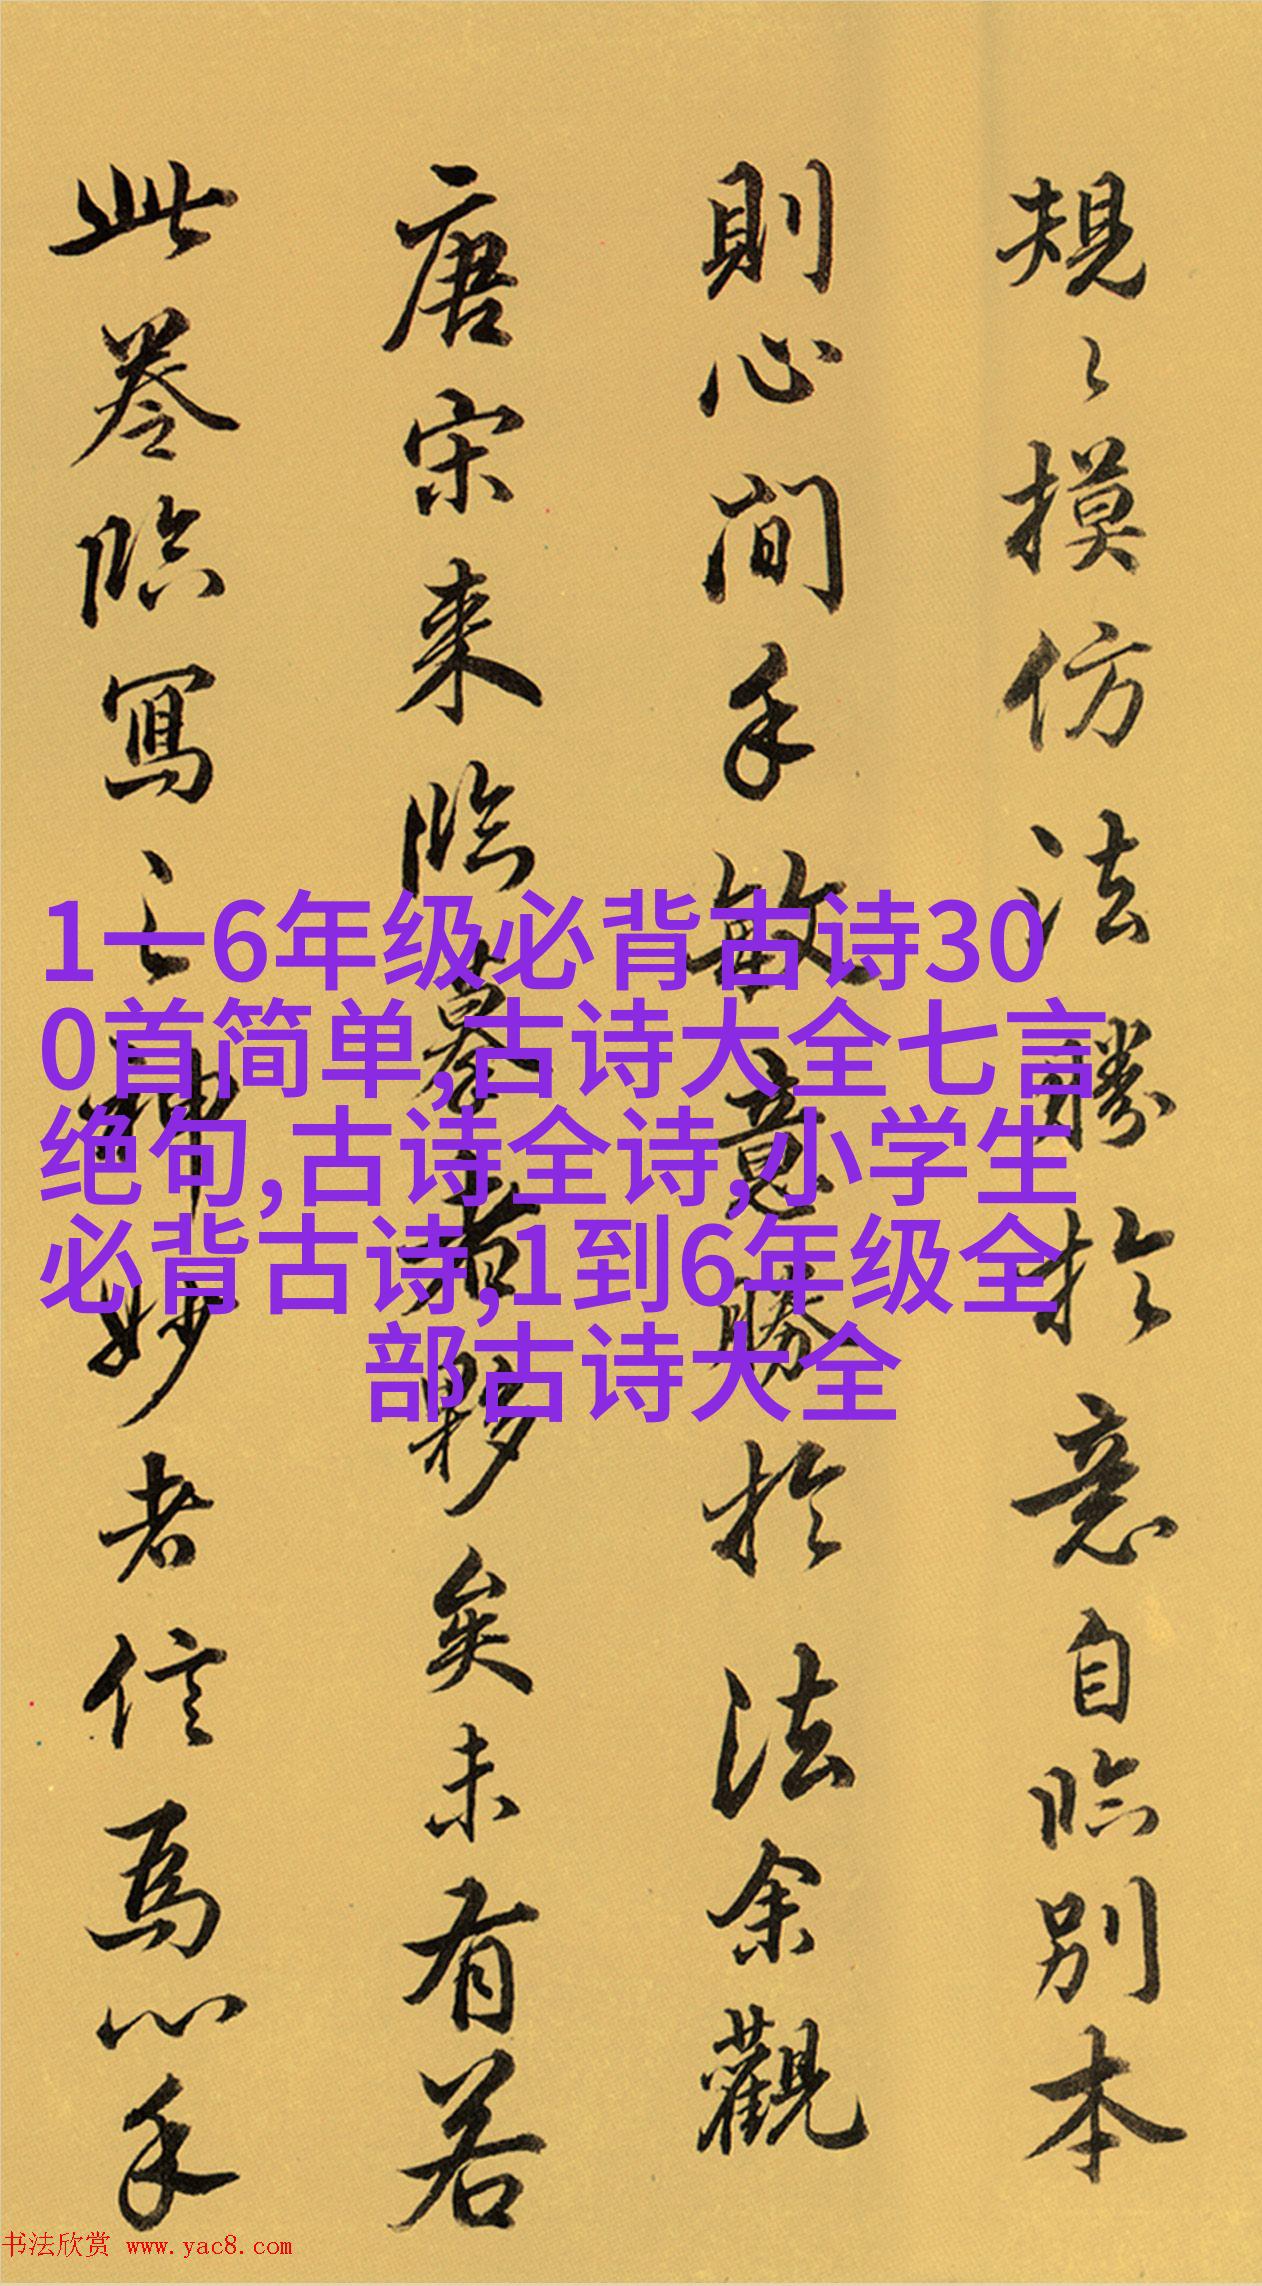 規〻摸仿法勝於意自臨別本
則心閒手敏意勝於法余觀
唐宋来臨摹者夥矣未有若
此卷臨寫之神妙者信為心手
1一6年级必背古诗30
0首简单,古诗大全七言
绝句,古诗全诗,小学生
必背古诗,1到6年级全
部古诗大全
书法欣赏 www.yac8.com